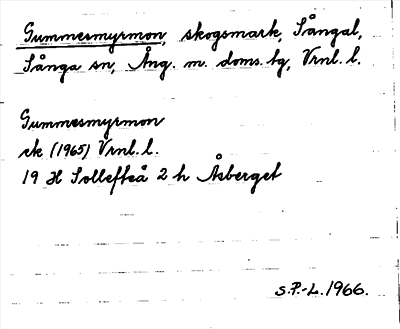 Gummesmyrmon, skogsmark, Sångal,
Sånga sn, Ång. m. doms. tg, Vrnl. l.
Gummesmyrmon
sk (1965) Vrnl. l.
19 H Sollefteå 2 h Åsberget
S.P.-L. 1966.